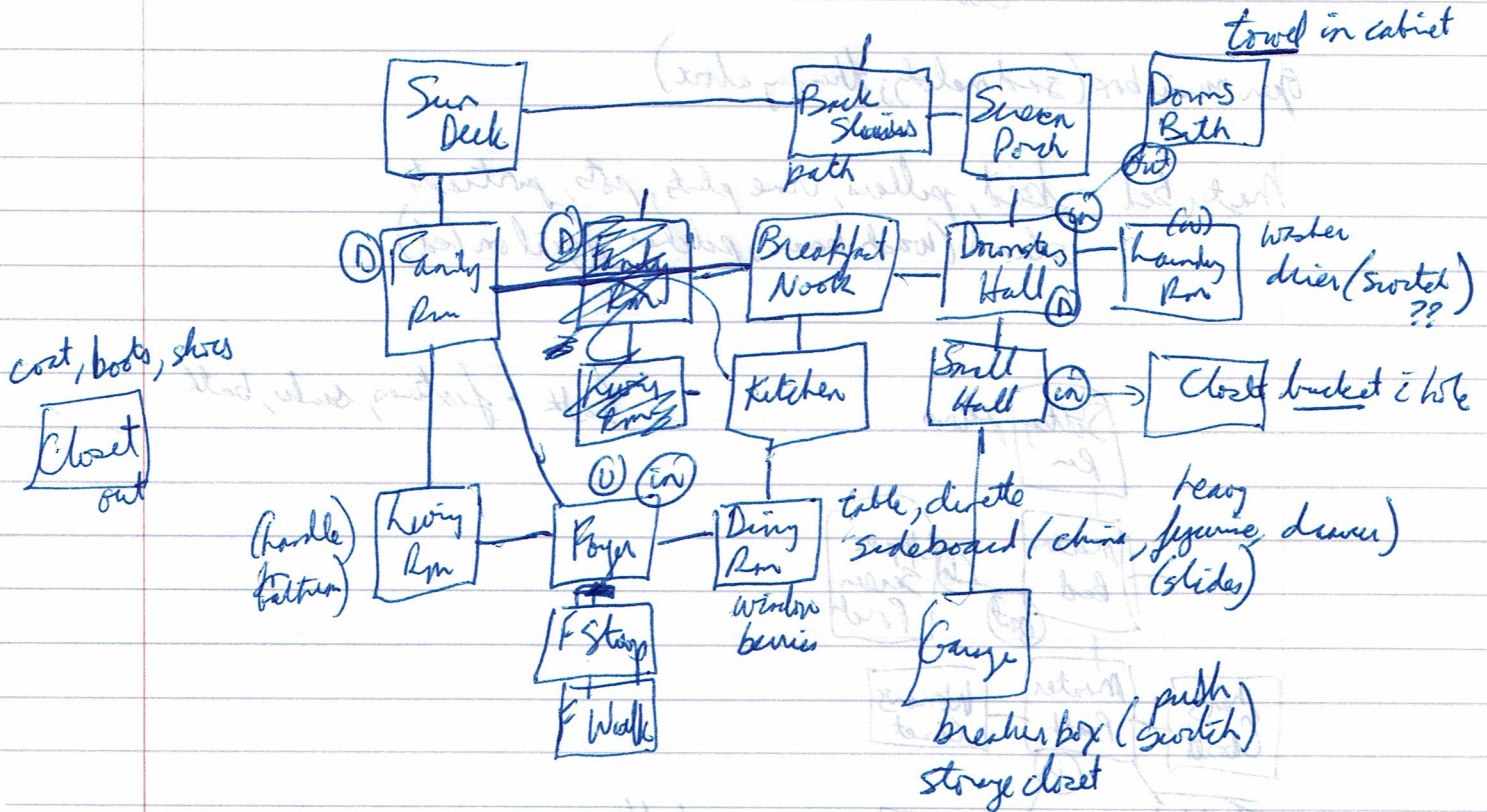 towel in cabinet
Sun
Deck
Back
path
Screen
Porch
Downs
Bath
out
in
D
Family
Rm
D
Breakfast
Nook
Downstrs
Hall
D
(W)
Laundry
Rm
washer
drier (switch
??)
coat, boots, shoes
Closet
out
Living
Rm
Kitchen
Small
Hall
in
Closet
bucket c hole
(handle)
Living
Rm
U
in
Foyer
Dining
Rm
table, dinette
sideboard (china, figurine, drawer)
heavy
(slides)
window
berries
F Stoop
F Walk
Garage
breaker box (push
switch)
storage closet